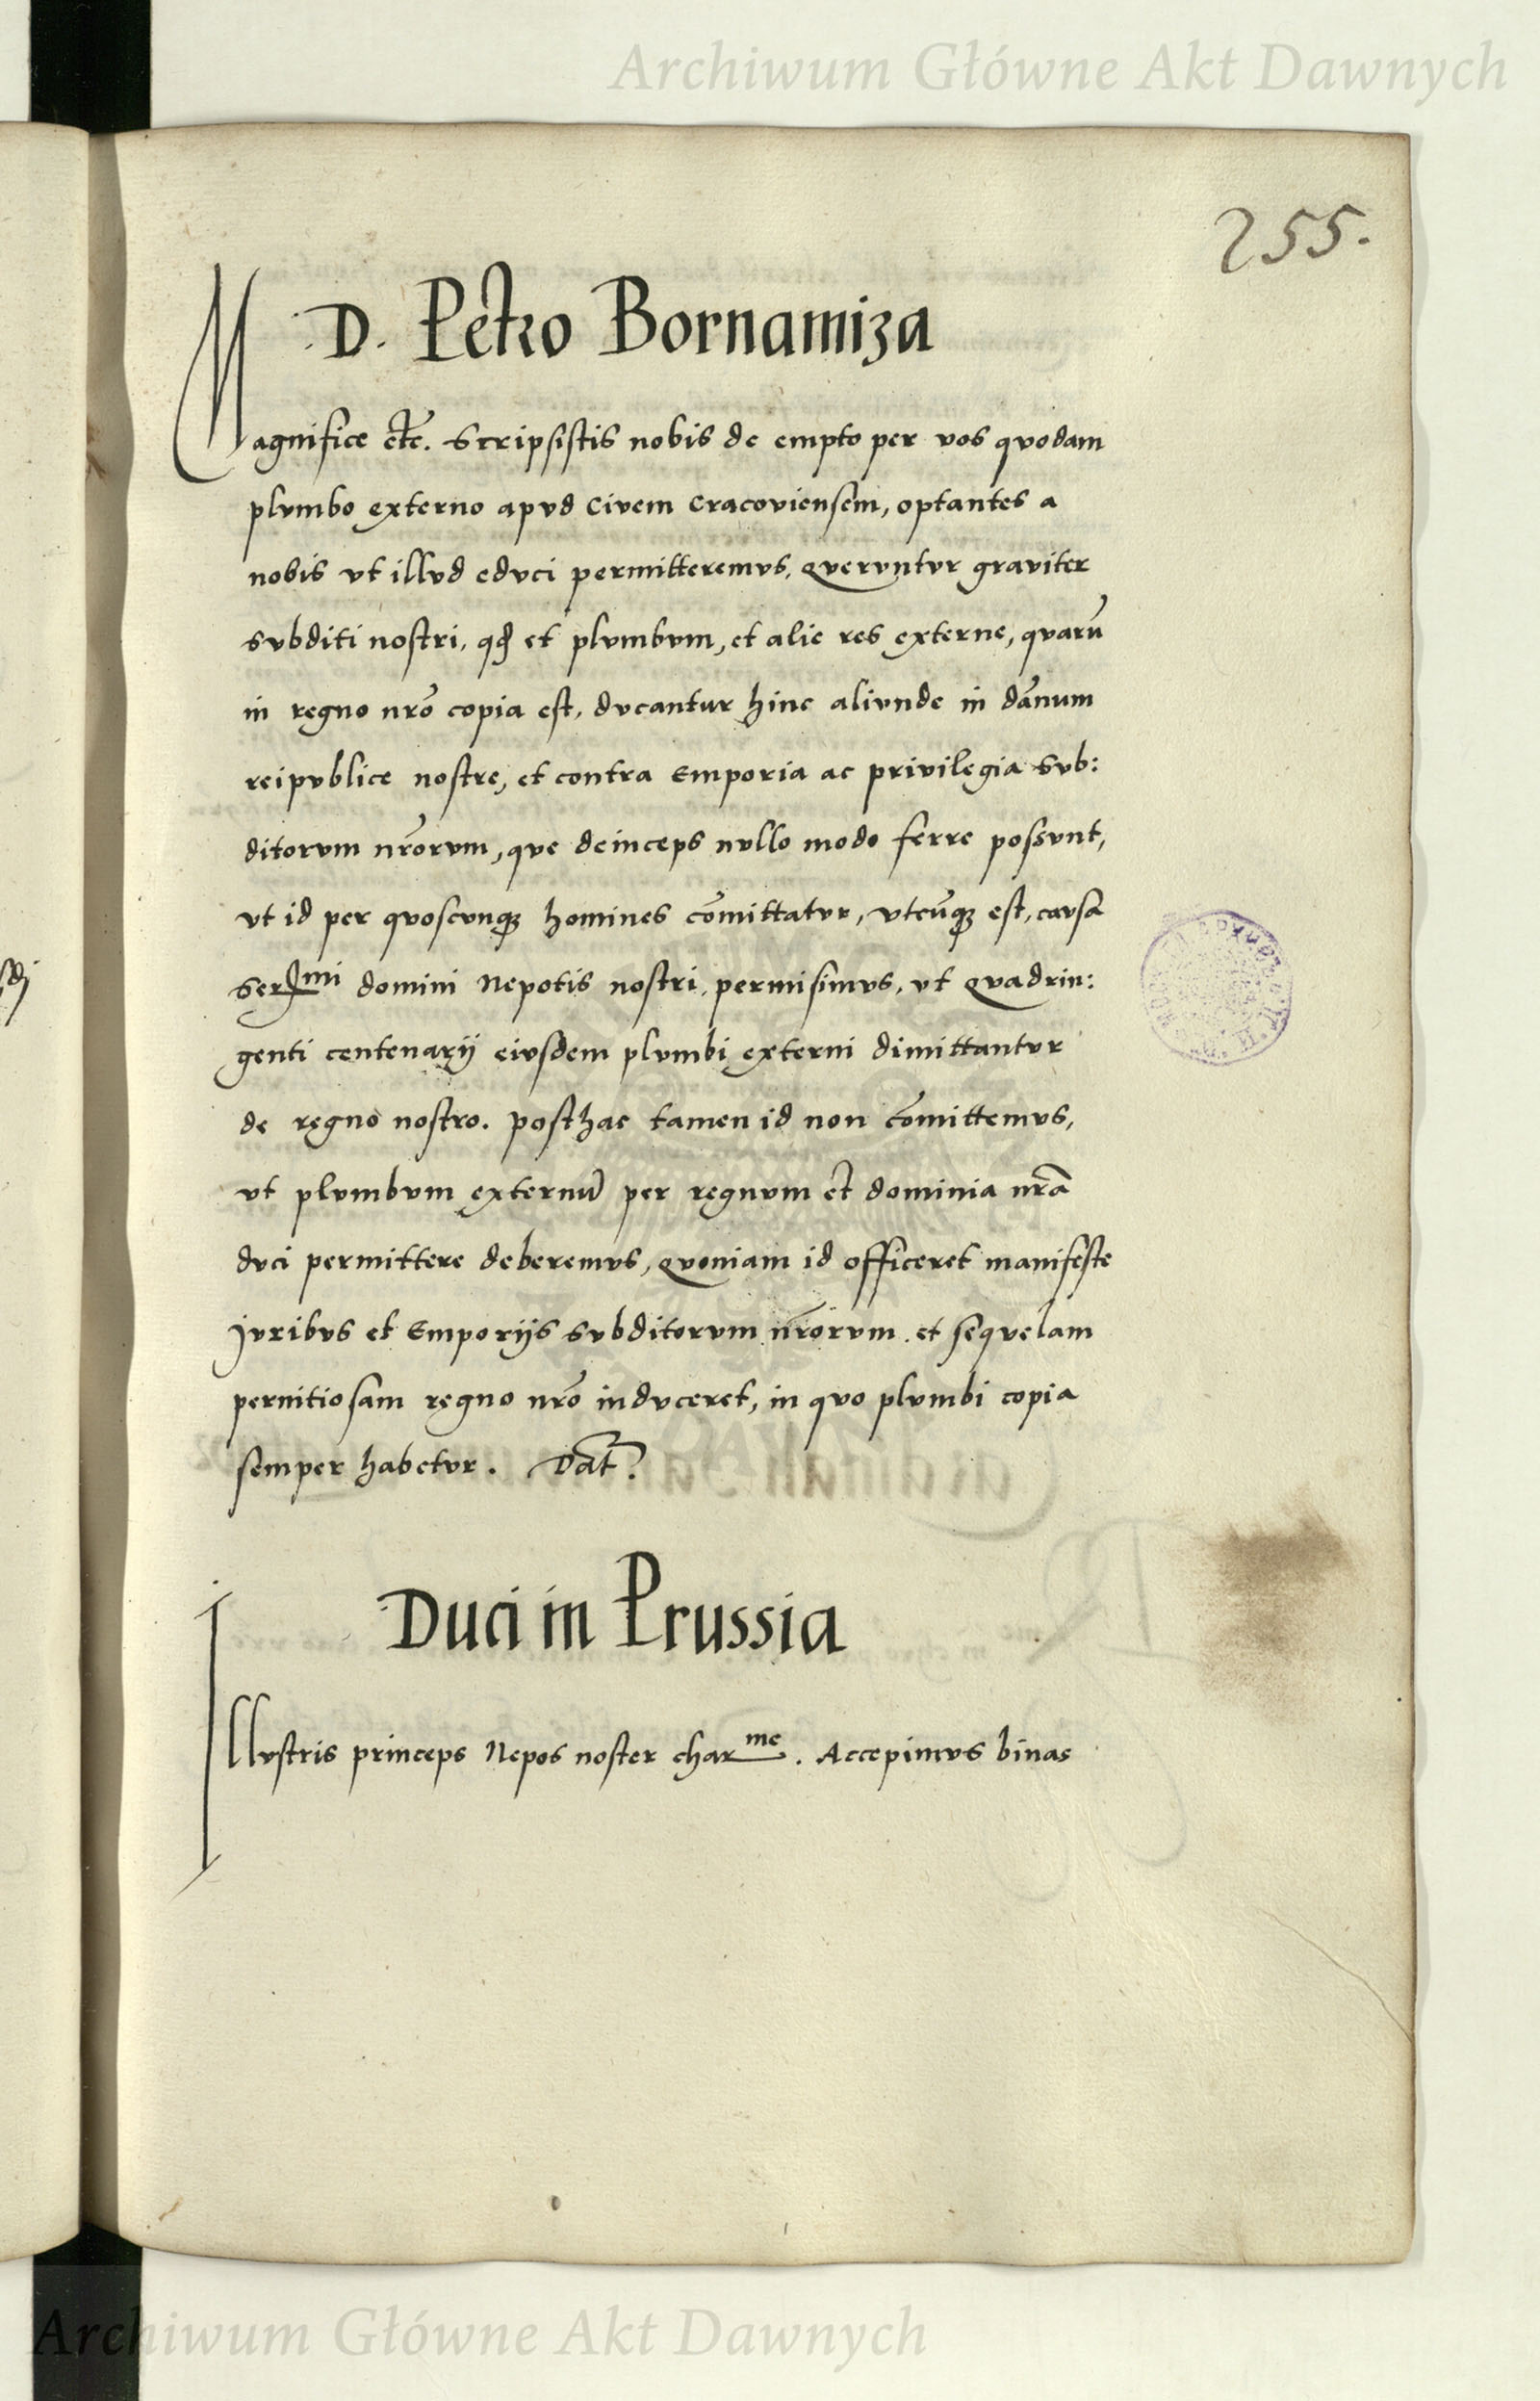 Archiwum Główne Akt Dawnych
255.
D. Petro Bornamiza
Magnifice etc̄. Scripsistis nobis de empto per vos quodam
plumbo externo apud Civem Cracoviensem, optantes a
nobis ut illud educi permitteremus. Queruntur graviter
subditi nostri, qd et plumbum, et alie res externe, quarū
in regno nrō copia est, ducantur hinc aliunde in dānum
reipublice nostre, et contra Emporia ac privilegia sub:
ditorum nr̄orum, que deinceps nullo modo ferre possunt,
ut id per quoscunqȝ homines cōmittatur, utcūqȝ est, causa
Ser^mi domini Nepotis nostri, permisimus, ut Quadrin:
genti centenarij eiusdem plumbi externi dimittantur
de regno nostro. posthac tamen id non cōmittemus,
ut plumbum externū per regnum et dominia nrā
duci permittere deberemus, Quoniam id officeret manifeste
Juribus et Emporijs subditorum nr̄orum et sequelam
pernitiosam regno nrō induceret, in quo plumbi copia
semper habetur. Dat̄.
Duci in Prussia
Illustris princeps Nepos noster char^me. Accepimus binas
Archiwum Główne Akt Dawnych